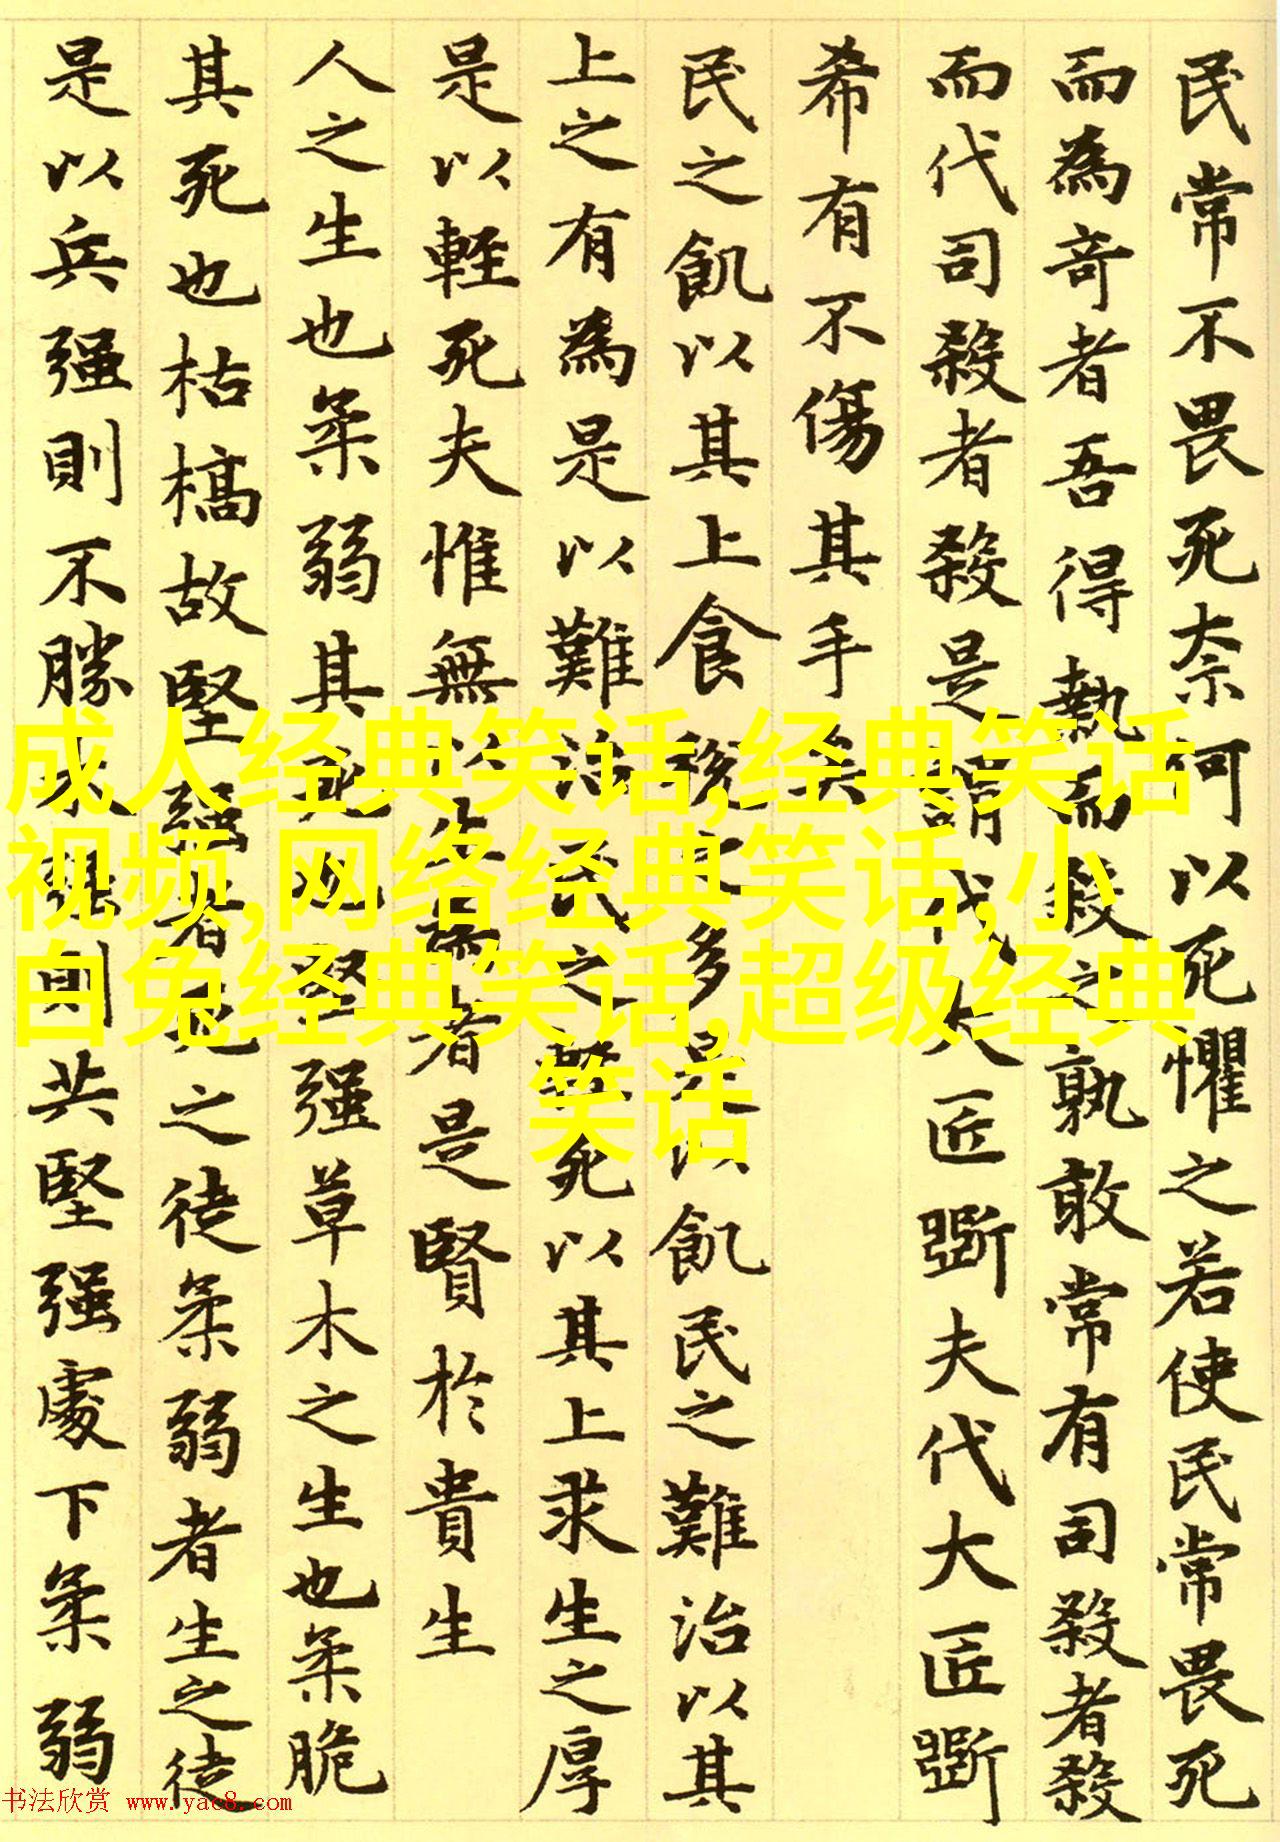 民常不畏死奈何以死懼之若使民常畏死
而為竒者吾得執而殺之孰敢常有司殺者殺
而代司殺者殺是謂代大匠斲夫代大匠斲
希有不傷其手矣
民之飢以其上食稅之多是以飢民之難治以其
上之有為是以難治民之輕死以其上求生之厚
是以輕死夫惟無以生為者是賢於貴生
人之生也柔弱其死也堅强草木之生也柔脆
其死也枯槁故堅强者死之徒柔弱者生之徒
是以兵强則不勝木强則共堅强處下柔弱
成人经典笑话,经典笑话
视频,网络经典笑话,小
白兔经典笑话,超级经典
笑话
书法欣赏 www.yac8.com